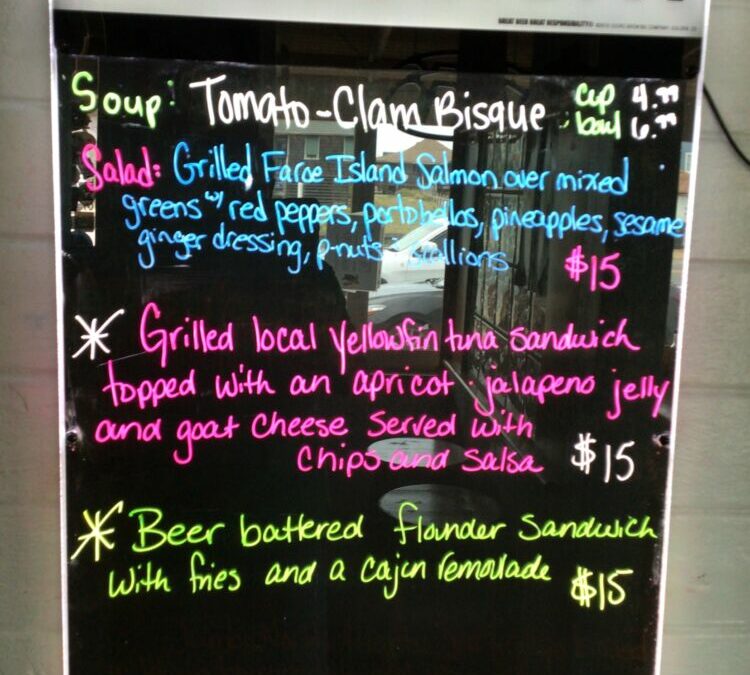 GREAT BEER GREAT RESPONSIBILITY®
Soup: Tomato-Clam Bisque cup 4.99
bowl 6.99
Salad: Grilled Faroe Island Salmon over mixed
greens w/ red peppers, portobellos, pineapples, sesame
ginger dressing, p-nuts, scallions $15
* Grilled local yellowfin tuna sandwich
topped with an apricot-jalapeno jelly
and goat cheese served with
chips and salsa $15
* Beer battered flounder sandwich
with fries and a cajun remoulade $15